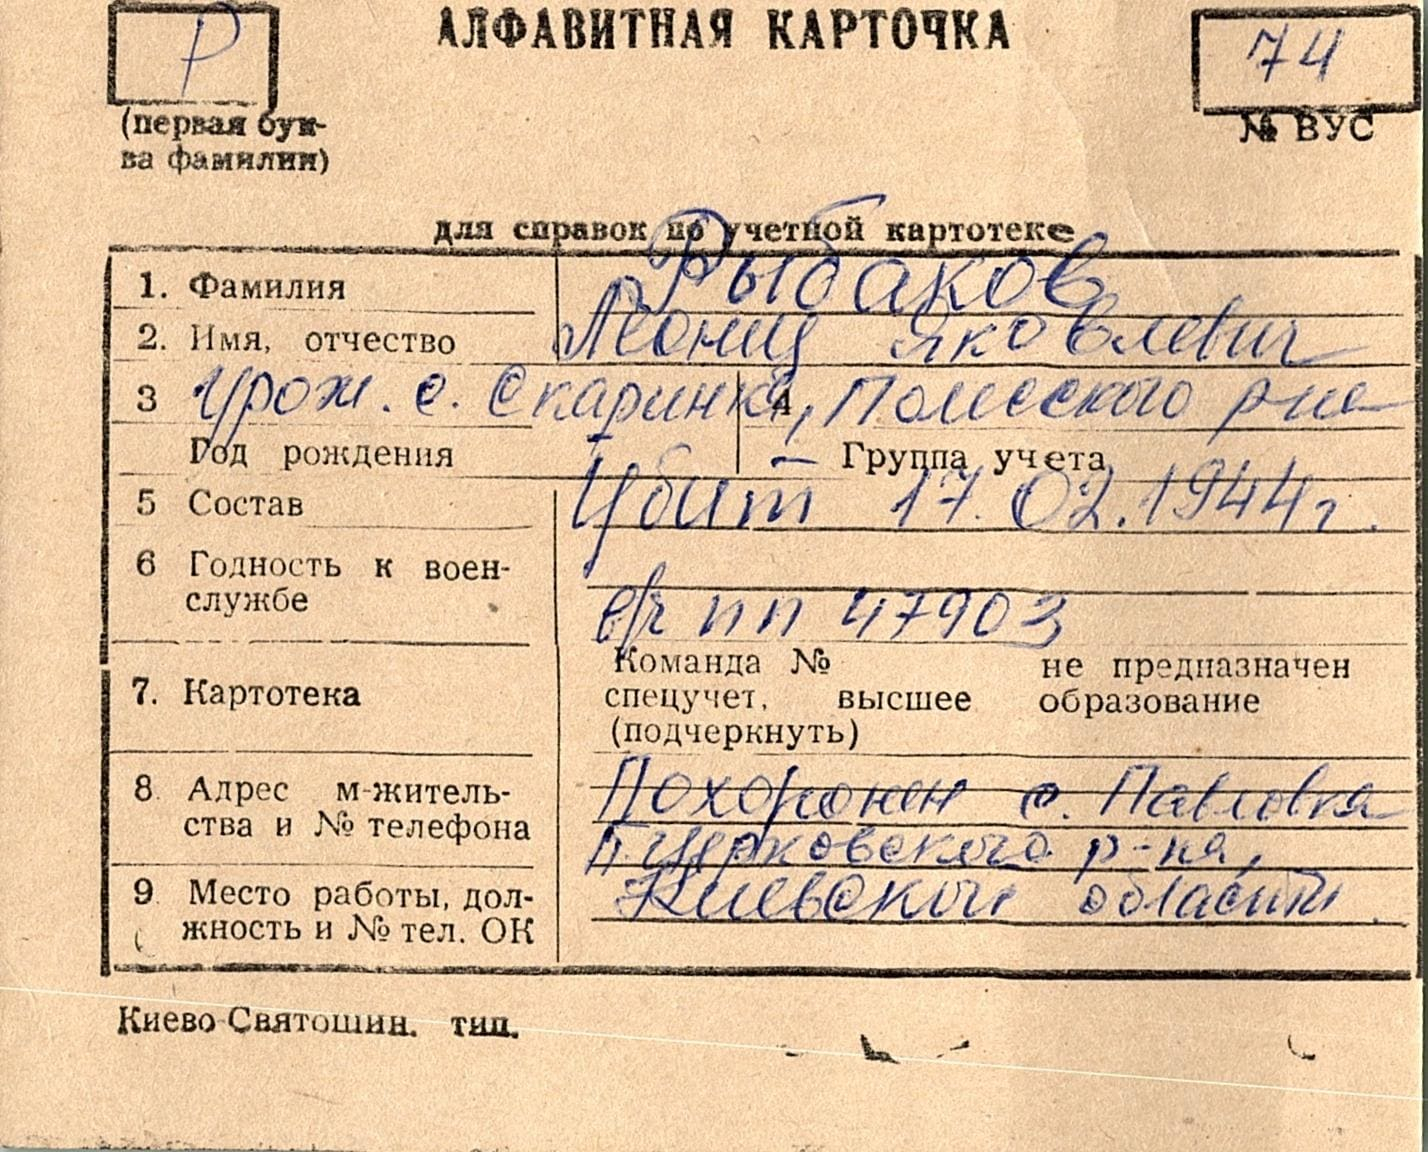 АЛФАВИТНАЯ КАРТОЧКА
Р
74
(первая бук-
ва фамилии)
№ ВУС
для справок по учетной картотеке
1. Фамилия Рыбаков
2. Имя, отчество Леонид Яковлевич
3 Урож. с. Скаринка, Полесского р-на
Год рождения Группа учета
5 Состав Убит 17.02.1944г.
6 Годность к воен-
службе
в/ч пп 47903
Команда № не предназначен
7. Картотека спецучет, высшее образование
(подчеркнуть)
8. Адрес м-житель-
ства и № телефона
Похоронен с. Павловка
р-на,
9. Место работы, дол-
жность и № тел. ОК
Киевской области.
Киево-Святошин. тип.